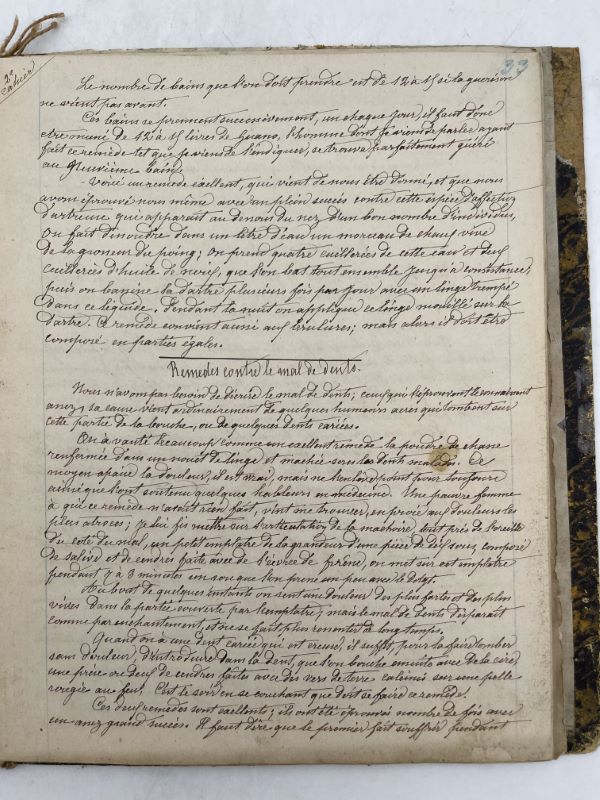 2e
cahier
33
Le nombre de bains que l'on doit prendre est de 12 à 15 si la guérison
ne vient pas avant.
Ces bains se prennent successivement, un chaque jour, il faut donc
être muni de 12 à 15 livres de Guano, l'homme dont je viens de parler, ayant
fait ce remède tel que je viens de l'indiquer, se trouva parfaitement guéri
au Neuvième bain.
- Voici un remède exellent, qui vient de nous être donné, et que nous
avons éprouvé nous même avec un plein succès contre cette espèce d'affection
dartreuse qui apparait au dessous du nez d'un bon nombre d'individus,
On fait dissoudre dans un litre d'eau un morceau de chaux vive
de la grosseur du poing; on prend quatre cuillerées de cette eau et deux
cuillerées d'huile de noix, que l'on bat tout ensemble jusqu'à consistance,
puis on bassine la dartre plusieurs fois par jour avec un linge trempé
dans ce liquide. Pendant la nuit on applique ce linge mouillé sur la
dartre. Ce remède convient aussi aux brulures; mais alors il doit être
composé en parties égales.
Remèdes contre le mal de dents.
Nous n'avons pas besoin de décrire le mal de dents; ceux qui l'éprouvent le connaissent
assez, sa cause vient ordinairement de quelques humeurs acres qui tombent sur
cette partie de la bouche, ou de quelques dents cariées.
On a vanté beaucoup comme un exellent remède la poudre de chasse
renfermée dans un nouet de linge et machée sous les dents malades. Ce
moyen apaise la douleur, il est vrai, mais ne l'enlève point pour toujours
ainsi que l'ont soutenu quelques hableurs en médecine. Une pauvre femme
à qui ce remède n'avait rien fait, vint me trouver, en proie aux douleurs les
plus atroces; je lui fis mettre sur l'articulation de la machoire, tout près de l'oreille
du coté du mal, un petit emplatre de la grandeur d'une pièce de dix sous, composé
de salive et de cendres faite avec de l'écorce de frêne, on met sur cet emplatre
pendant 7 à 8 minutes un sou que l'on presse un peu avec le doigt.
Au bout de quelques instants on sent une douleur des plus fortes et des plus
vives dans la partie couverte par l'emplatre; mais le mal de dents disparait
comme par enchantement, et ne se fait plus ressentir de longtemps.
Quand on a une dent cariée qui est creuse, il suffit, pour la faire tomber
sans douleur, d'introduire dans la dent, que l'on bouche ensuite avec de la cire,
une prise ou deux de cendres faites avec des vers de terre calcinés sur une pelle
rougie au feu. C'est le soir en se couchant que doit se faire ce remède.
Ces deux remèdes sont exellents; ils ont été éprouvés nombre de fois avec
un assez grand succès. Il faut dire que le premier fait souffrir pendant